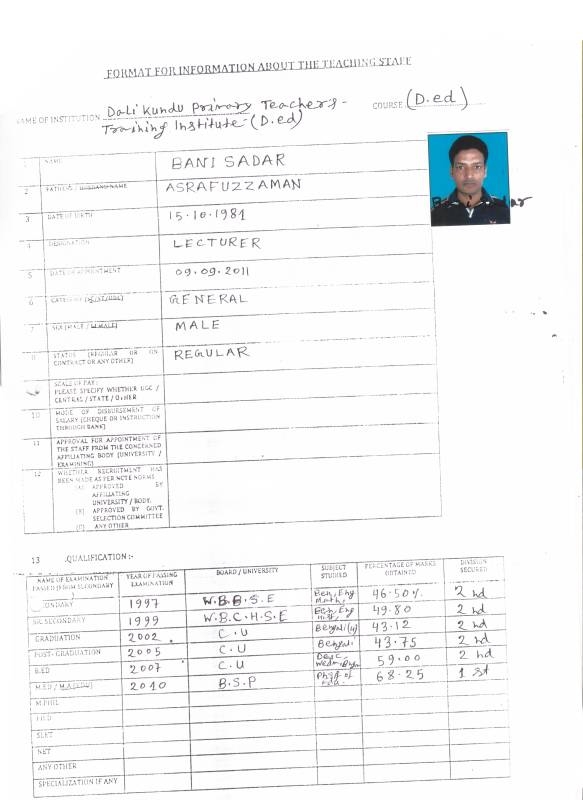 FORMAT FOR INFORMATION ABOUT THE TEACHING STAFF
NAME OF INSTITUTION Dali Kundu Primary Teachers- COURSE (D.ed)
Training Institute-(D.ed)
1 NAME BANI SADAR
2 FATHERS / HUSBAND NAME ASRAFUZZAMAN
3. DATE OF BIRTH 15.10.1981
4. DESIGNATION LECTURER
5 DATE OF APPOINTMENT 09.09.2011
6 CATEGORY (SC/ST/OBC) GENERAL
7 SEX (MALE / FEMALE) MALE
8 STATUS (REGULAR OR ON REGULAR
CONTRACT OR ANY OTHER)
SCALE OF PAY:
PLEASE SPECIFY WHETHER UGC /
CENTRAL / STATE / OTHER
10 MODE OF DISBURSEMENT OF
SALARY (CHEQUE OR INSTRUCTION
THROUGH BANK)
11 APPROVAL FOR APPOINTMENT OF
THE STAFF FROM THE CONCERNED
AFFILIATING BODY (UNIVERSITY /
EXAMINING)
12 WHETHER RECRUITMENT HAS
BEEN MADE AS PER NCTE NORMS
(A) APPROVED BY
AFFILIATING
UNIVERSITY / BODY.
(B) APPROVED BY GOVT.
SELECTION COMMITTEE
(C) ANY OTHER
13 .QUALIFICATION :-
NAME OF EXAMINATION PASSED FROM SECONDARY YEAR OF PASSING EXAMINATION BOARD / UNIVERSITY SUBJECT STUDIED PERCENTAGE OF MARKS OBTAINED DIVISION SECURED
ONDARY 1997 W.B.B.S.E Ben, Eng Math, 46.50% 2nd
SECONDARY 1999 W.B.C.H.S.E Ben, Eng 49.80 2nd
GRADUATION 2002. C.U Bengali (H) 43.12 2nd
POST- GRADUATION 2005 C.U Bengali. 43.75 2nd
B.ED 2007 C.U 59.00 2nd
M.ED / M.A (EDU) 2010 B.S.P 68.25 1st
M.PHIL
PH.D
SLET
NET
ANY OTHER
SPECIALIZATION IF ANY